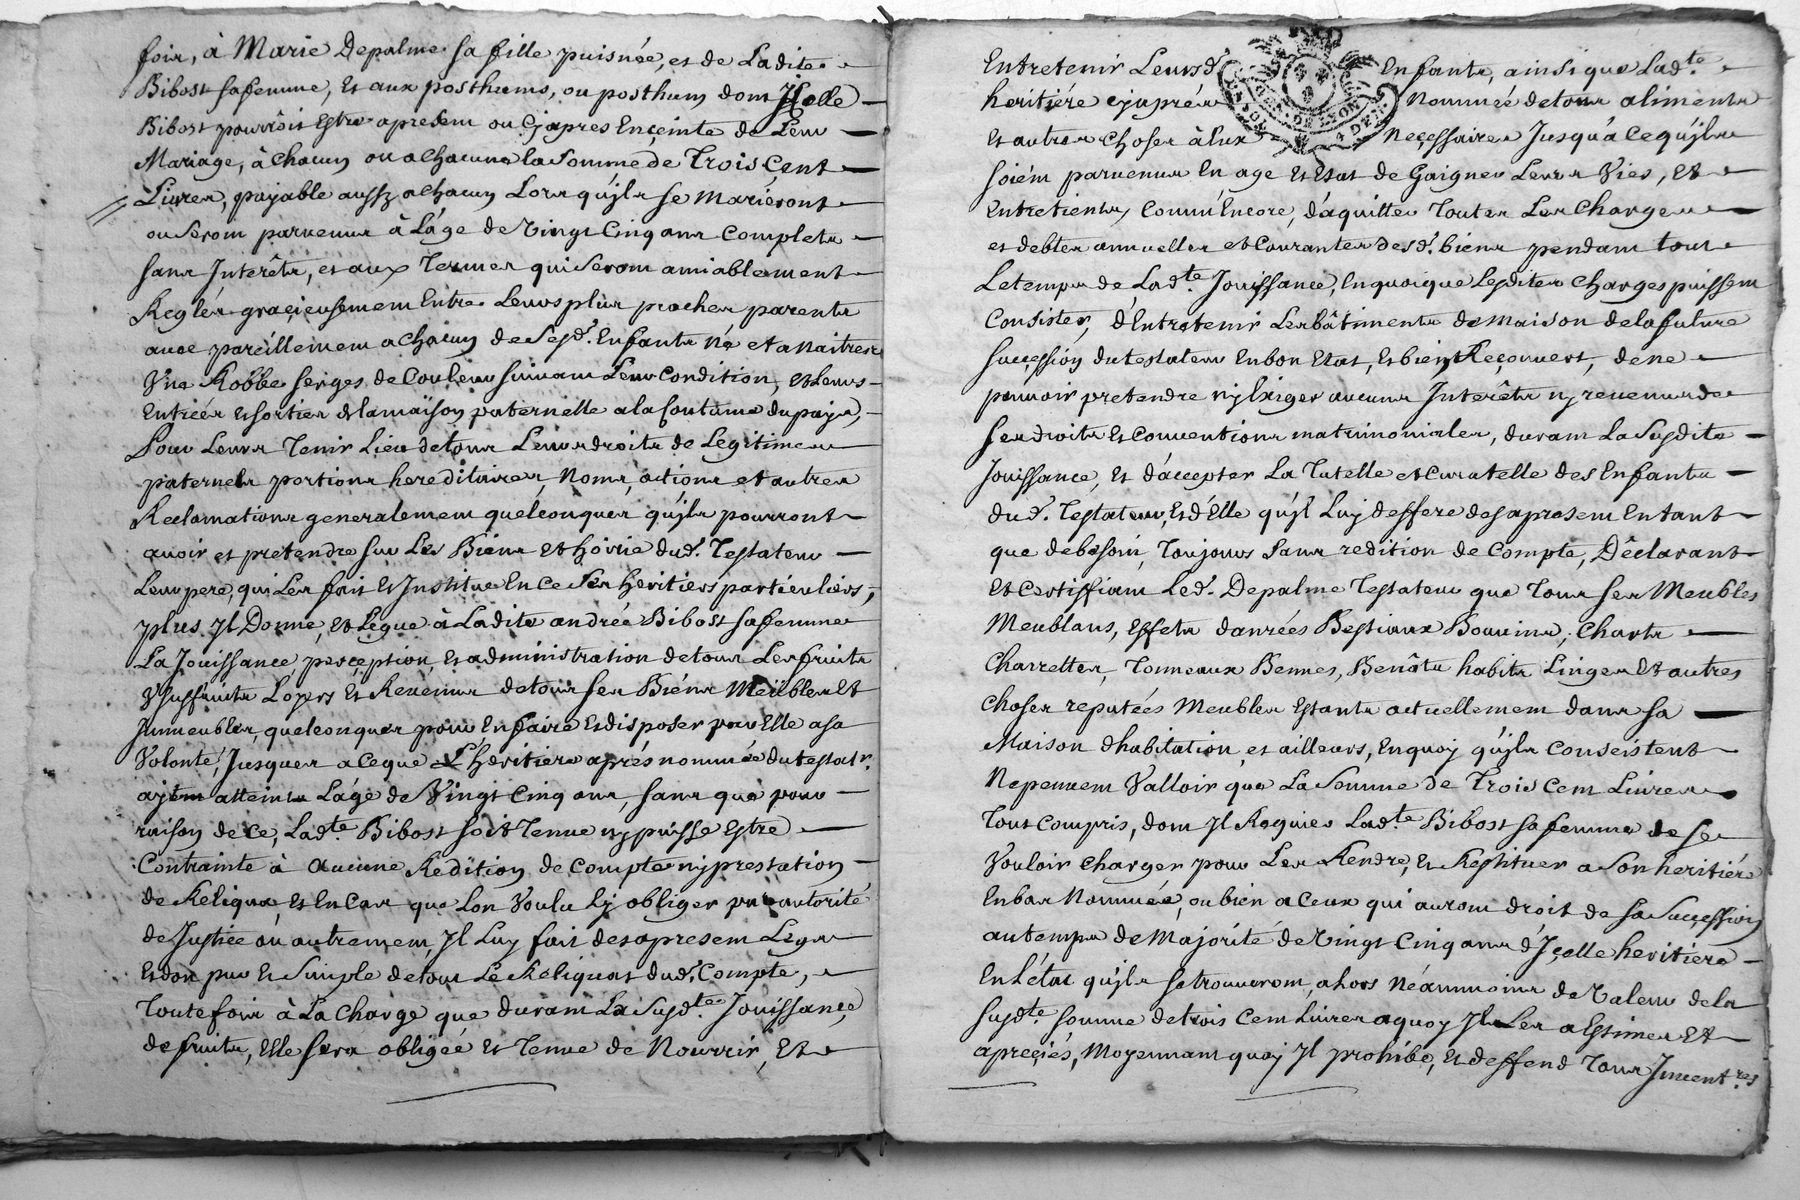 fois, à Marie Depalme sa fille puisnée, et de Ladite
Bibost sa femme, Et aux posthums, ou posthum dont Jcelle
Bibost pourroit Estre apresent ou Cy apres Enceinte de Leur
Mariage, à chacun ou a chacune la somme de Trois Cent
Livres, payable aussy a chacun Lors qu'jls se Marieront
ou seront parvenus à L'age de Vingt Cinq ans Complets
sans Interêts, et aux Termes qui seront amiablement
Reglés gracieusement Entre Leurs plus proches parents
avec pareillement a chacun de Sesd. Enfants né et a naitres
Vne Robbe serges de Couleur suivant Leur Condition, et Leurs
Entrées et sorties de la maison paternelle a la Coutume du pays,
Pour Leurs Tenir Lieu de tous Leurs droits de Legitimes
paternels portions hereditaires, Noms, actions et autres
Reclamations generalement quelconques qu'jls pourront
avoir et pretendre sur Les Biens et hoirie dud. Testateur
Leur pere, qui Les fait Et Institue En ce ses heritiers particuliers,
plus Jl Donne, et Legue à Ladite andrée Bibost sa femme
La Jouissance perception, et administration de tous Les fruits
Vsuffruits Loyers et Revenus de tous ses Biens Meubles et
Jmmeubles, quelconques pour En faire et disposer par Elle a sa
Volonté, Jusques a ceque L'heritiere après nommée du testatr.
ayent atteints L'age de Vingt Cinq ans, sans que pour
raison de ce, Ladte Bibost soit Tenue ny puisse Estre
Contrainte à aucune Redition de Compte ny prestation
de Reliqua, et En Cas que Lon Voulu Ly obliger par autorité
de Justice ou autrement, Jl Luy fait des apresent Legs
et don pur et simple de tout Le Reliquat dud. Compte,
Toutefois à La charge que durant La Susdte Jouissance
de fruits, Elle sera obligée et Tenue de Nourrir, Et
Entretenir Leursd. Enfants, ainsi que Ladte
heritiére cy après Nommée de tous aliments
et autres choses à Eux Necessaires Jusqu'a Ce qu'jls
soient parvenus En age Et Etat de Gaigner Leurs Vies, Et
Entretients, Comm'Encore, d'aquitter Toutes Les Charges
et debtes annuelles et Courantes desd. biens pendant tout
Le temps de Ladte Jouissance, En quoique Lesdites Charges puissent
Consister, d'Entretenir Les bâtiments de maison de la future
succession du testateur En bon Etat, Et bien Reçouvert, de ne
pouvoir pretendre ny Exiger aucuns Interêts ny revenus de
ses droits et conventions matrimoniales, durant La Susdite
Jouissance, et d'accepter La Tutelle et Curatelle des Enfants
dud. Testateur, Et d'Elle qu'jl Luy deffere des apresent En tant
que de besoin, Toujours sans redition de Compte, Déclarant
et Certiffiant Led. Depalme Testateur que Tous ses Meubles
Meublans, Effets danrées Bestiaux Bouvins, Charts
Charrettes, Tonneaux Bennes, Benôts habits Linges et autres
Choses reputées Meubles Estants actuellement dans sa
Maison d'habitation, et ailleurs, En quoy qu'jls Conseistent
Nepeuvent Valloir que La Somme de Trois Cent Livres
Tout Compris, dont Jl Requier Ladte Bibost sa femme de se
Vouloir Charger pour Les Rendre, et Restituer a Son heritiére
En bas Nommée, ou bien a Ceux qui auront droit de sa Succession
au temps de Majorité de Vingt Cinq ans d'Jçelle heritiere
En L'état qu'jls se trouveront, alors Néanmoins de Valeur de la
susdte somme de trois Cent Livres a quoy Jl Les a Estimes Et
apreciés, Moyennant quoy Jl prohibe, et deffend Tous Jnventres